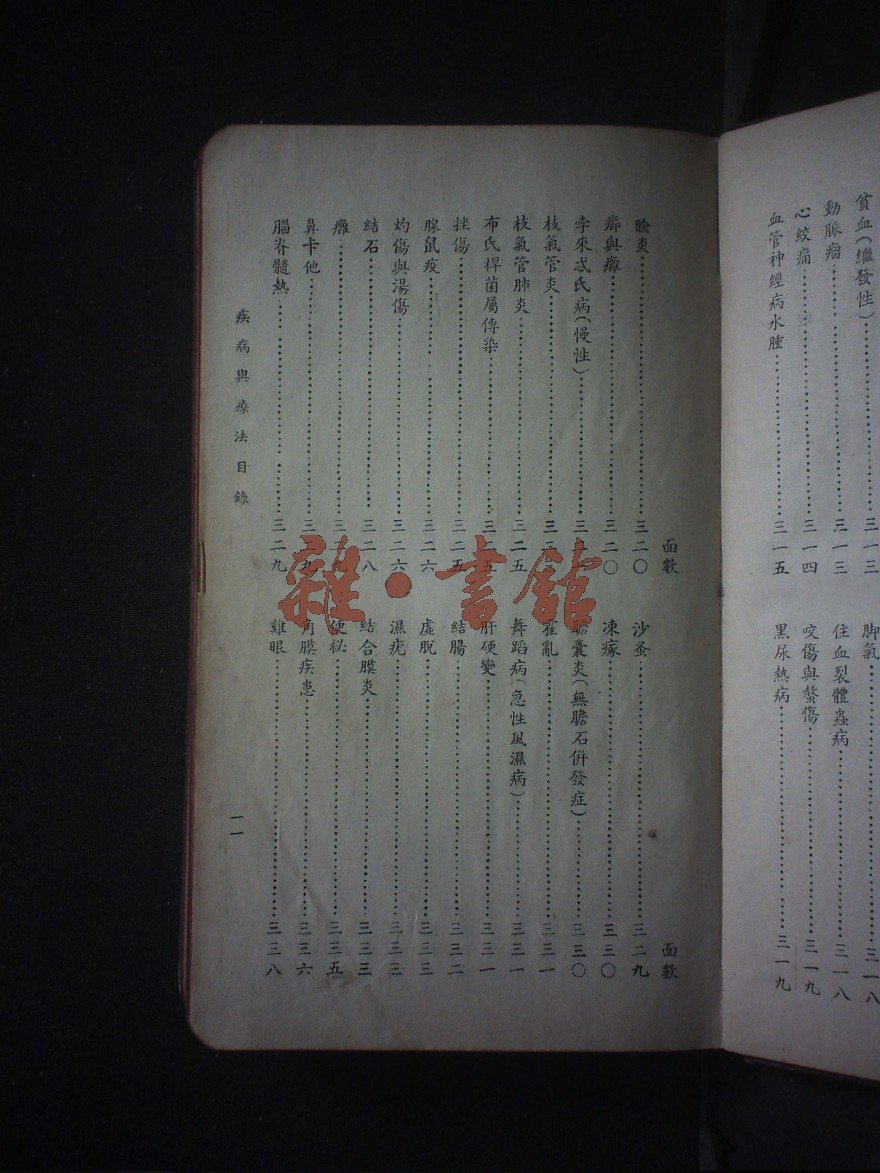 貧血(繼發性)……三一三
動脈瘤……三一三
心絞痛……三一四
血管神經病水腫……三一五
脚氣……三一八
住血裂體蟲病……三一八
咬傷與螫傷……三一九
黑尿熱病……三一九
面數
瞼炎……三二〇
癤與癰……三二〇
李來忒氏病(慢性)……三二
枝氣管炎……三二
枝氣管肺炎……三二五
布氏桿菌屬傳染……三二五
挫傷……三二五
腺鼠疫……三二六
灼傷與湯傷……三二六
結石……三二八
癰……三二九
鼻卡他……三二九
腦脊髓熱……三二九
面數
沙蚤……三二九
凍瘃……三三〇
膽囊炎(無膽石併發症)……三三〇
霍亂……三三一
舞蹈病(急性風濕病)……三三一
肝硬變……三三一
結腸……三三二
虛脫……三三三
濕疣……三三三
結合膜炎……三三三
便祕……三三五
角膜疾患……三三六
雞眼……三三八
疾病與療法目錄
一一
雜·書館